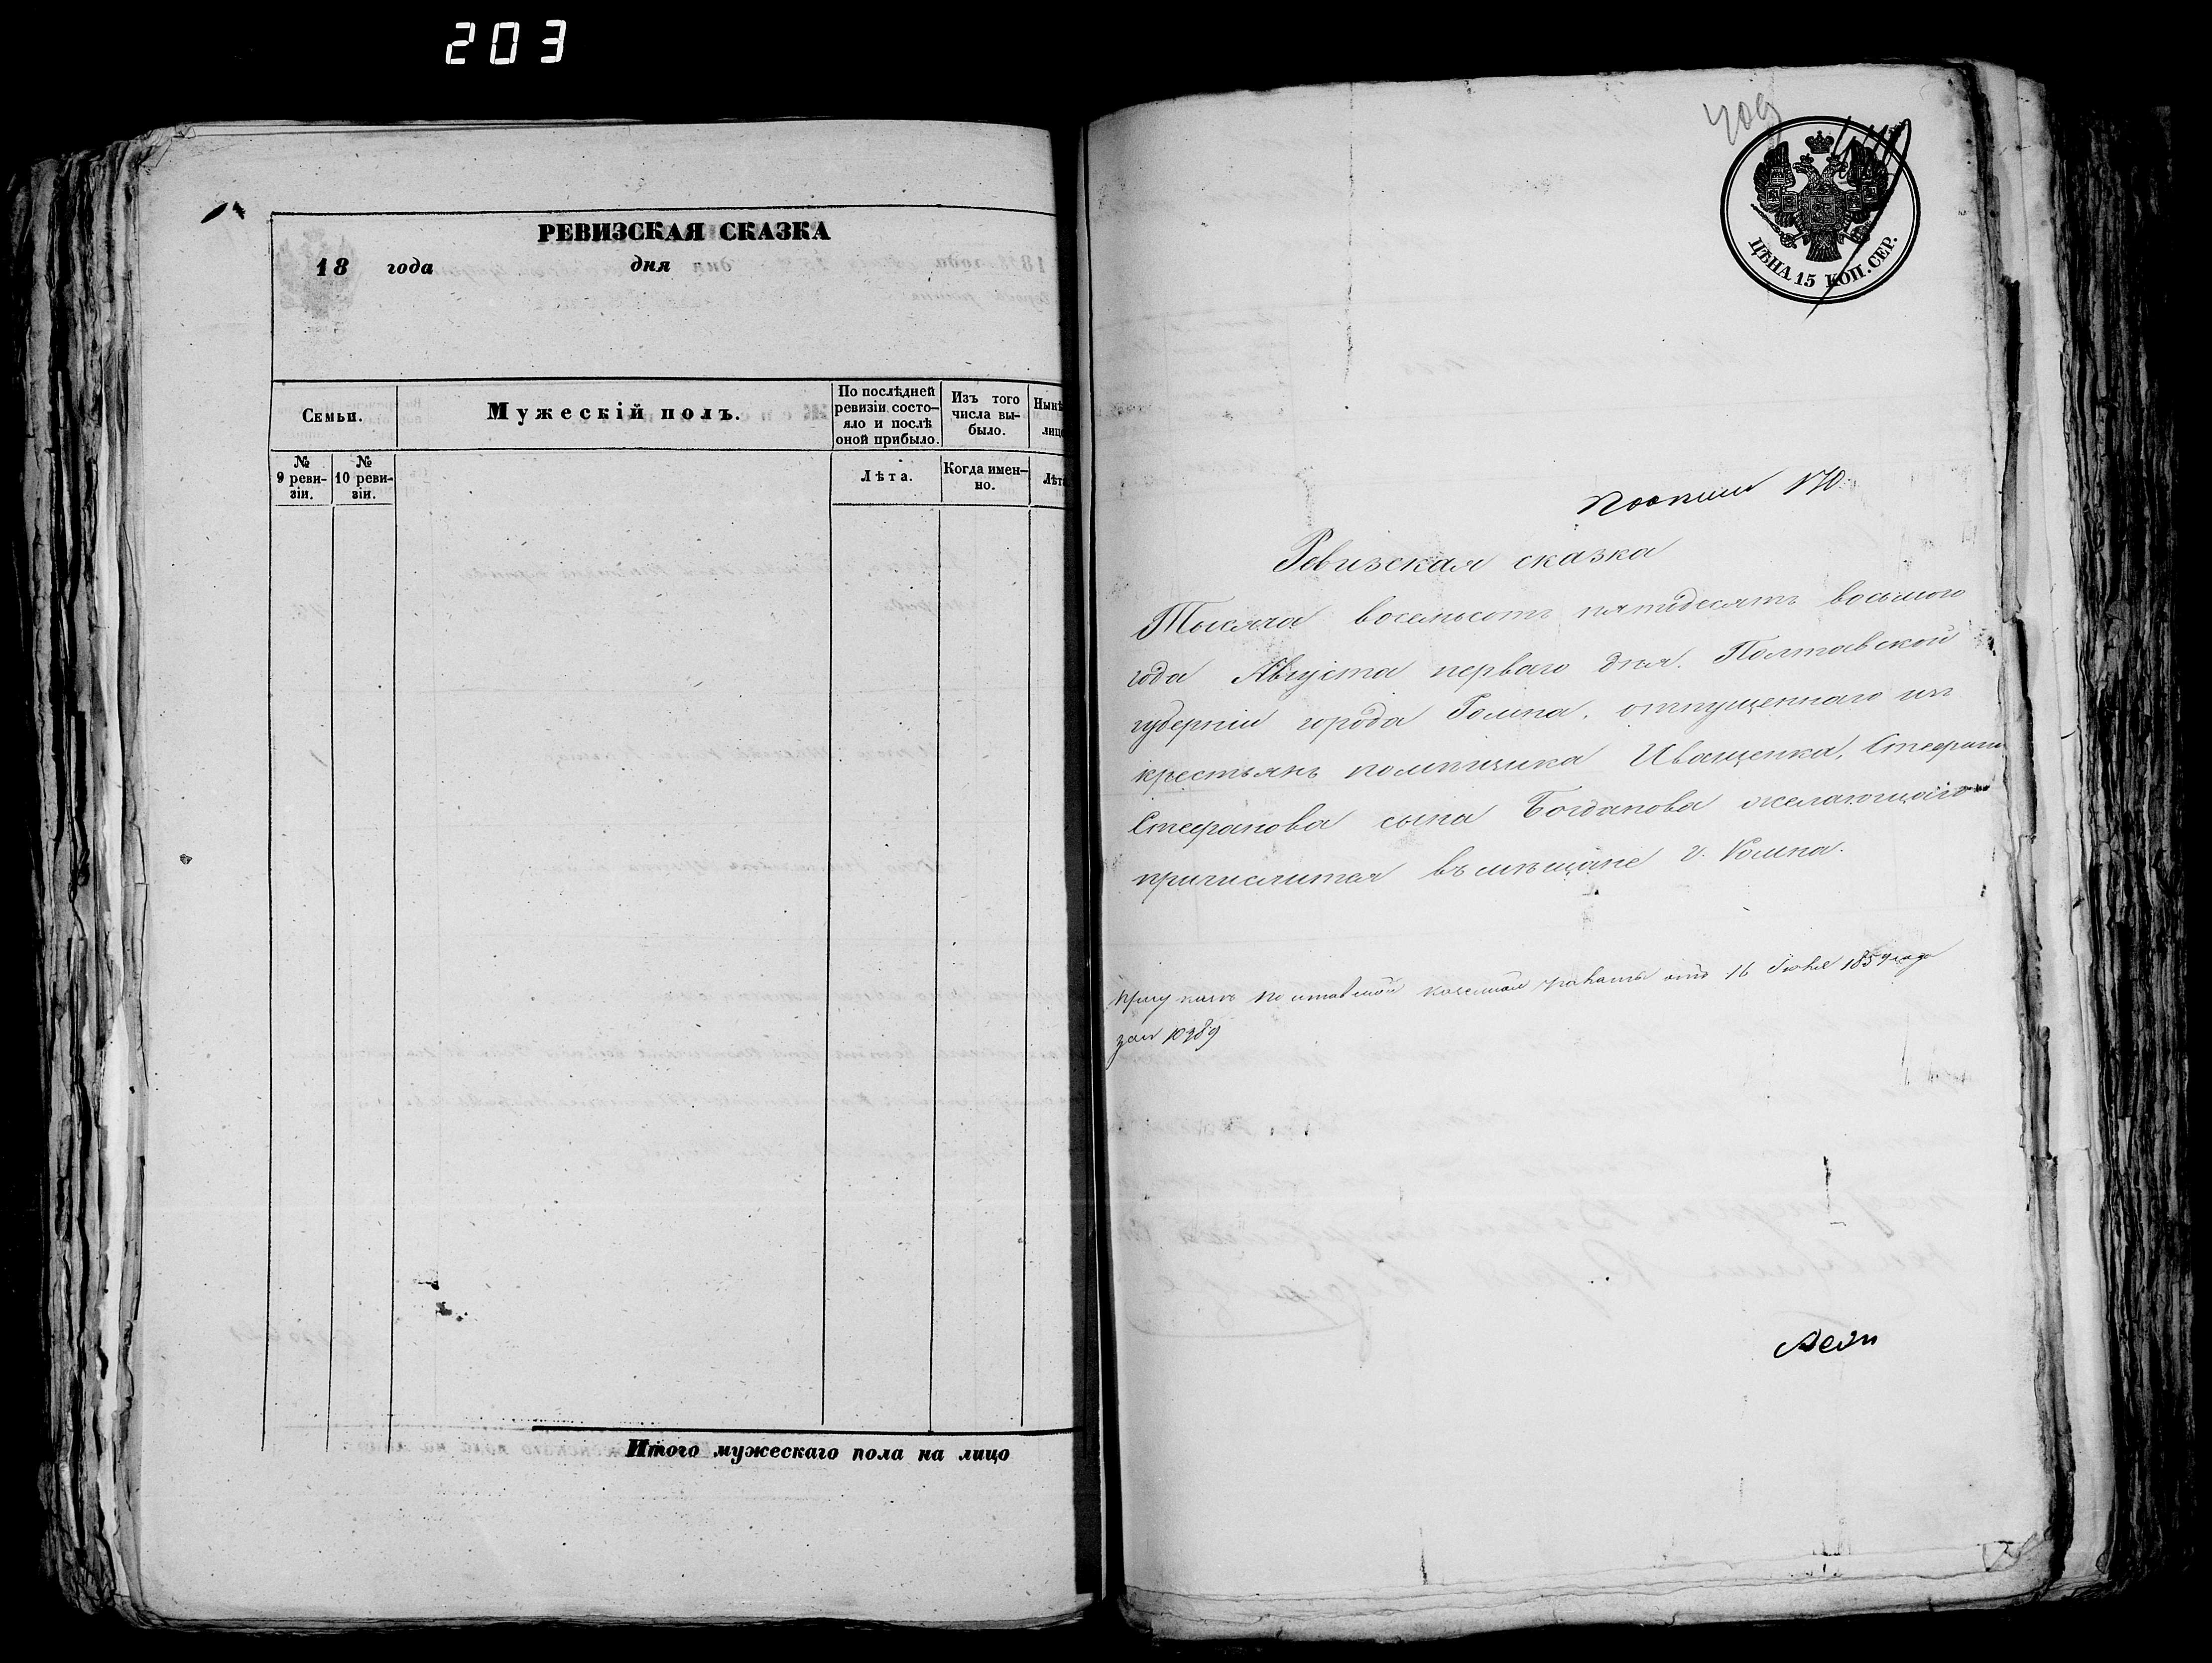 203
РЕВИЗСКАЯ СКАЗКА
18 года дня
Семьи.
Мужескій полъ.
По послѣдней ревизіи состо-
яло и послѣ
оной прибыло.
Изъ того
числа вы-
было.
Нынѣ
лицо
№
9 реви-
зіи.
№
10 реви-
зіи.
Лѣта.
Когда имен-
но.
Лѣта
Итого мужескаго пола на лицо
409
ЦѢНА 15 КОП. СЕР.
170
Ревизская сказка
Тысяча восемьсотъ пятидесятъ восьмого
года Августа перваго дня. Полтавской
губерніи города Ромна, отпущеннаго изъ
крестьянъ помѣщика Иващенка, Стефана
Стефанова сына Богданова желающаго
причислится въ мѣщане г. Ромна.
казен палаты отъ 16 1859 года
за № 10389